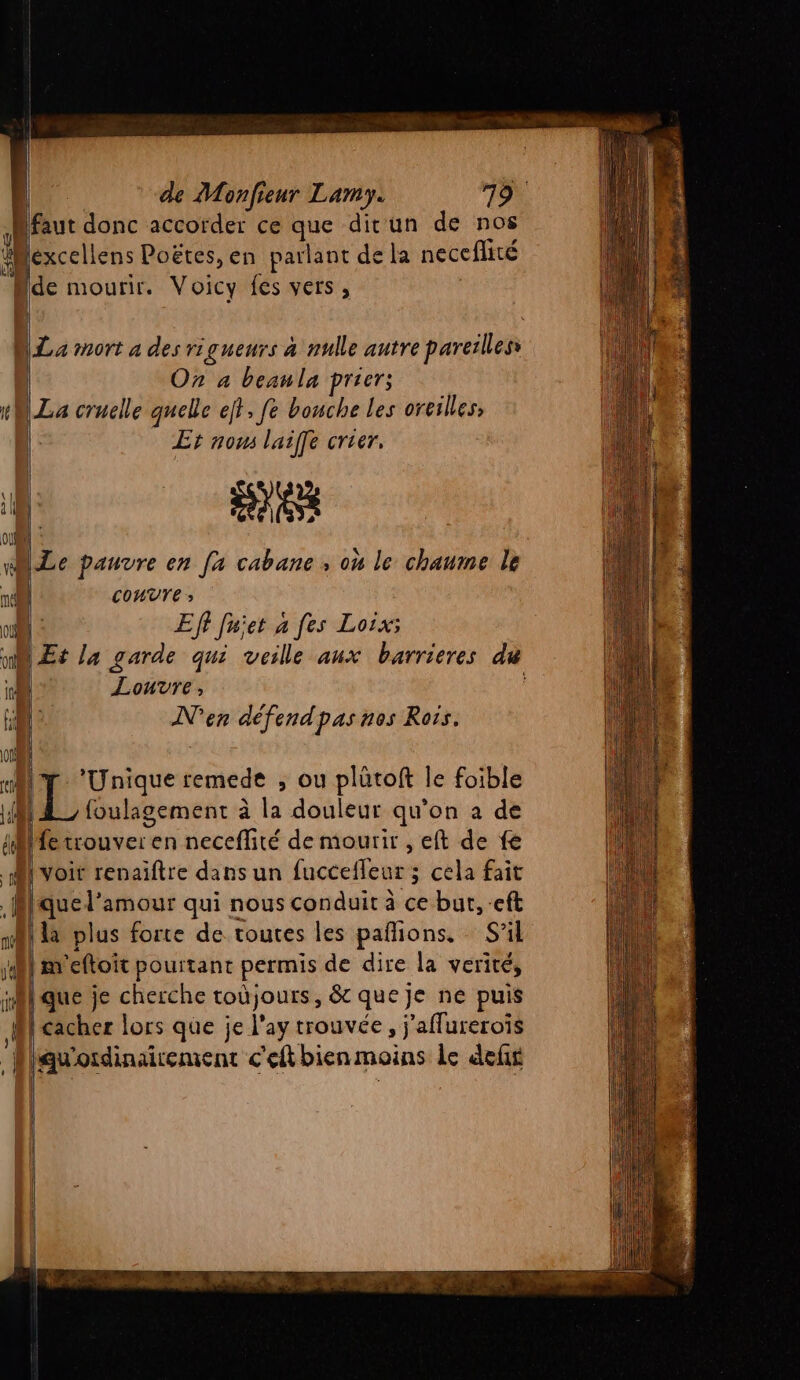 de Monſieur Lamy. 79
faut donc accorder ce que dit un de nos
excellens Poëtes, en parlant de la neceſſité
de mourir. Voicy ſes vers,
La mort a des rigueurs à nulle autre pareilles,
On a beau la prier;
La cruelle quelle eſt, ſe bouche les oreilles,
Et nous laiſſe crier.
Le pauvre en ſa cabane, où le chaume le
couvre,
Eſt ſujet à ſes Loix;
Et la garde qui veille aux barrieres du
Louvre,
N'en défend pas nos Rois.
L'Unique remede, ou plûtoſt le foible
ſoulagement à la douleur qu'on a de
ſe trouver en neceſſité de mourir, eſt de ſe
voir renaiſtre dans un ſucceſſeur; cela fait
que l'amour qui nous conduit à ce but, eſt
la plus forte de toutes les paſſions. S'il
m'eſtoit pourtant permis de dire la verité,
que je cherche toûjours, & que je ne puis
cacher lors que je l'ay trouvée, j'aſſurerois
qu'ordinairement c'eſt bien moins le deſir